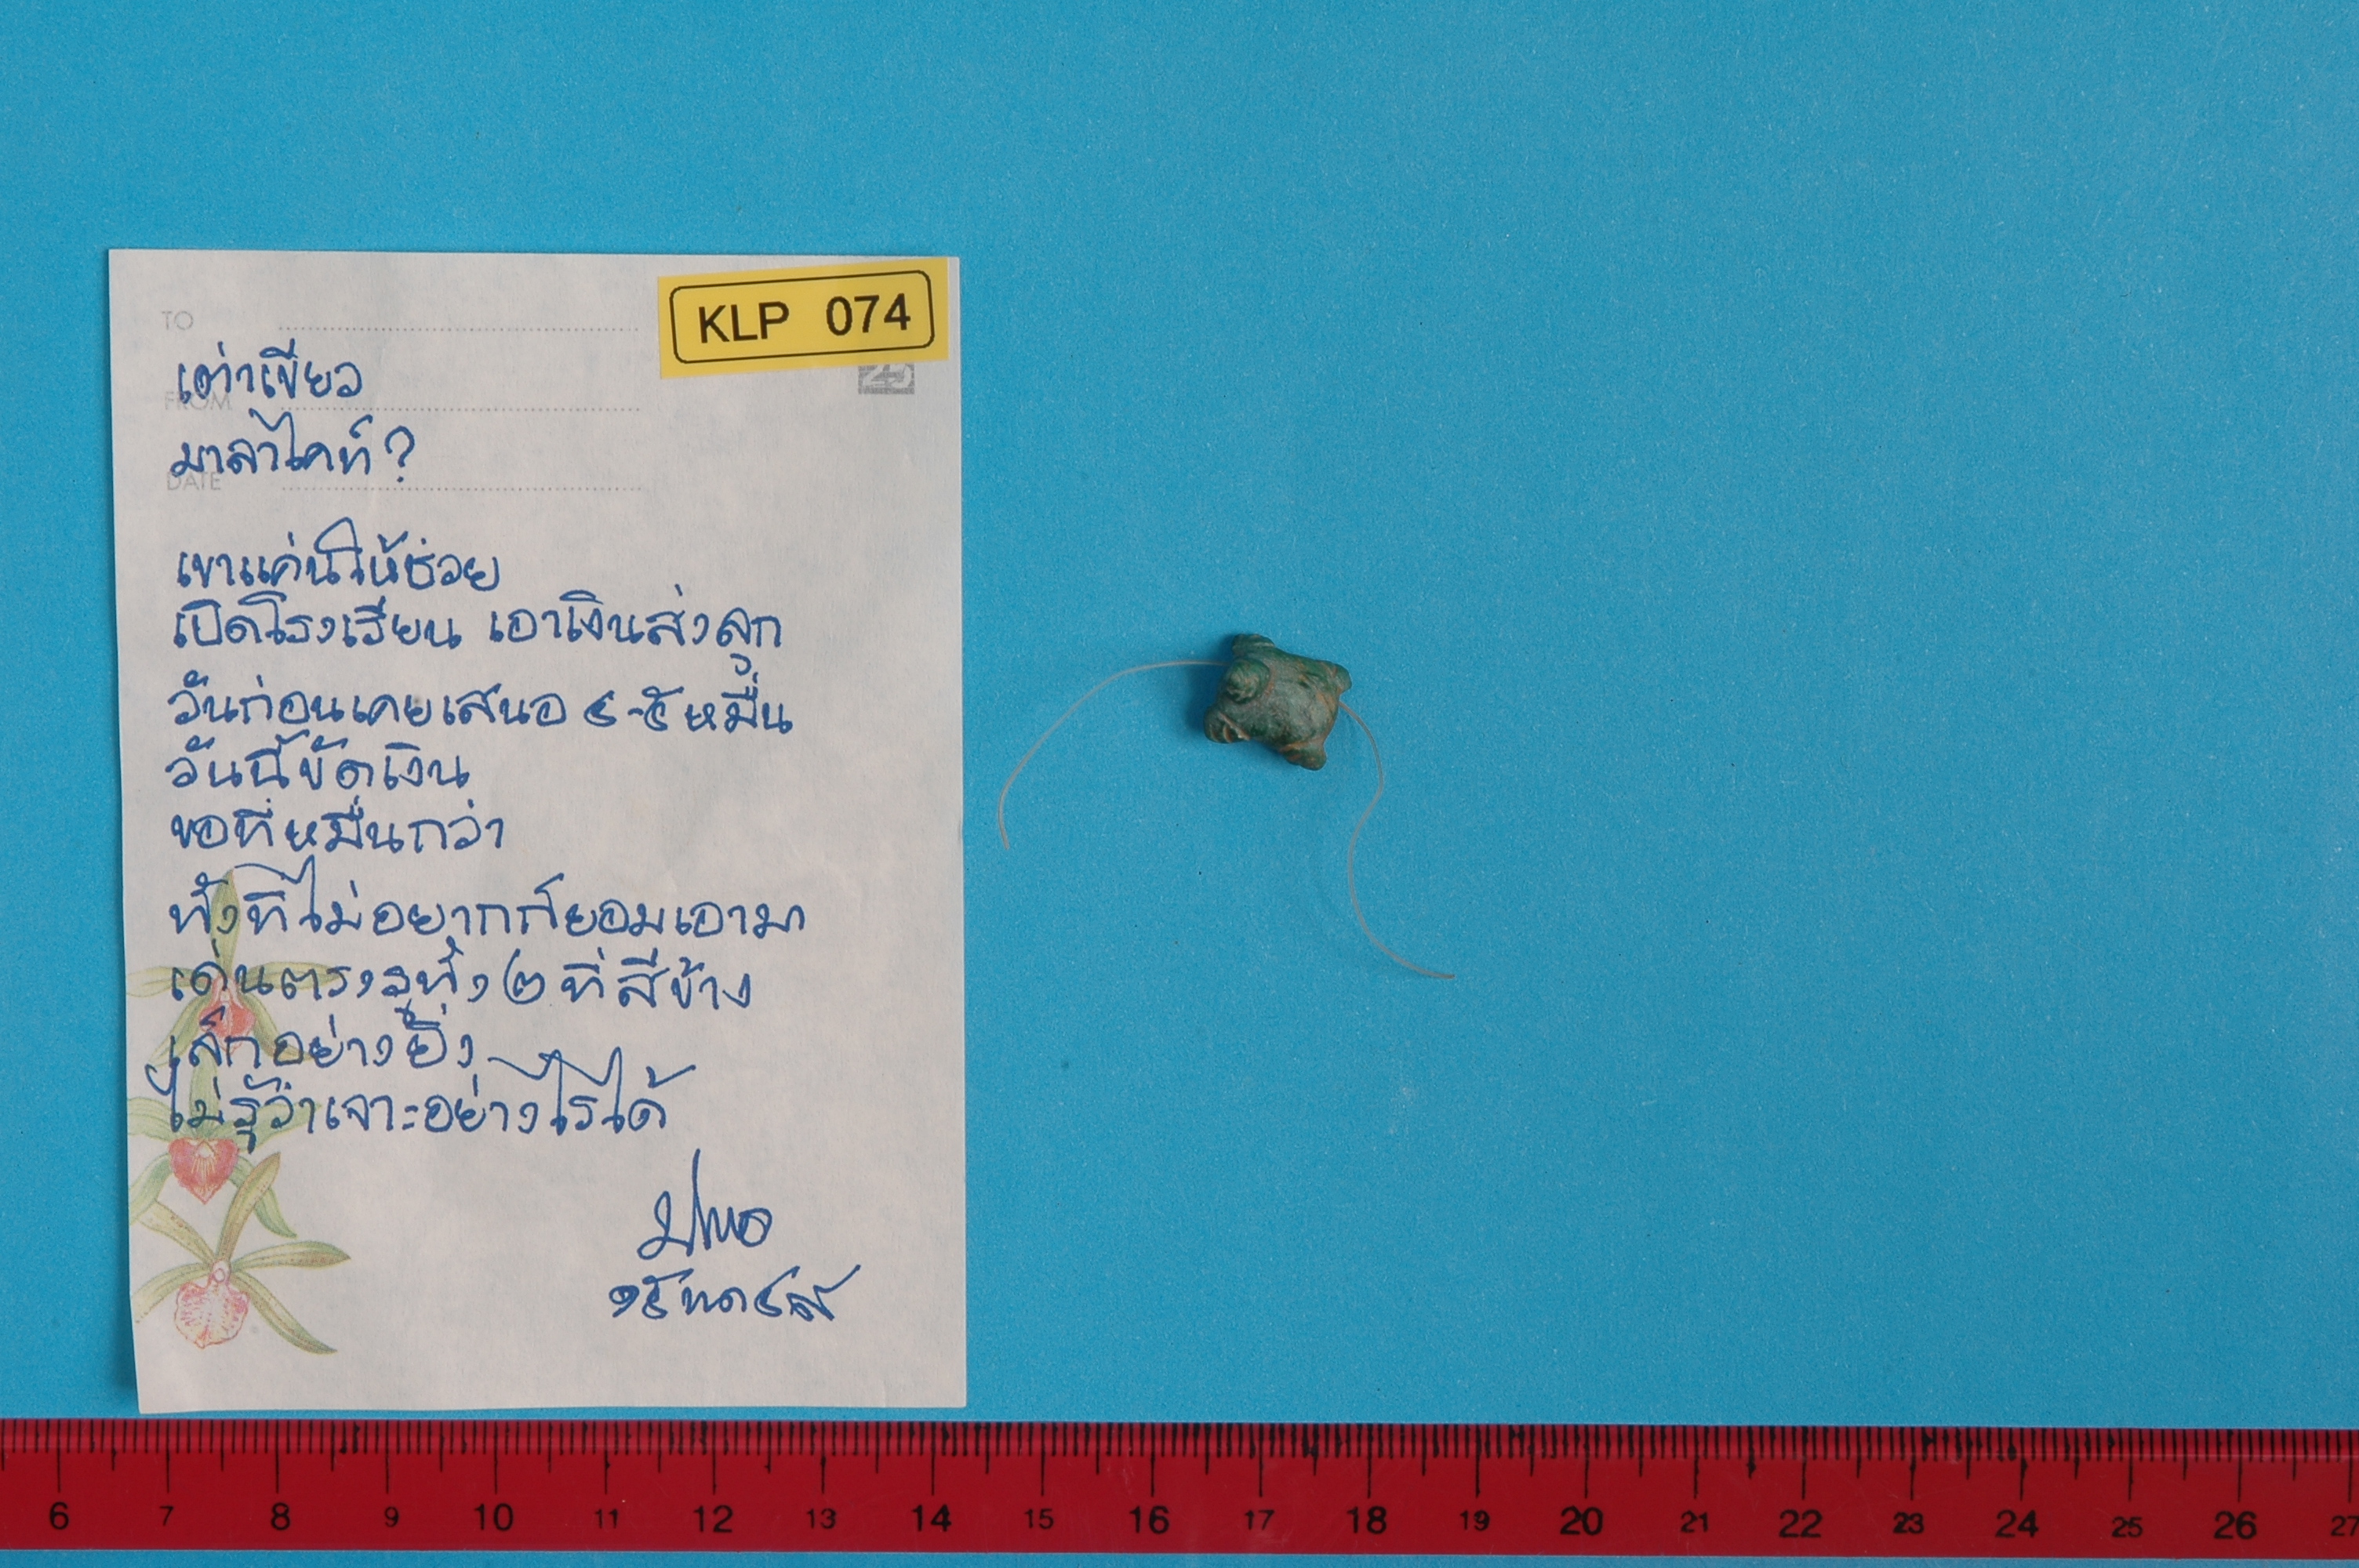 KLP 074
TO
เต่าเขียว
FROM
มาลาไคท์?
DATE
เขาแค่นให้ช่วย
เปิดโรงเรียน เอาเงินส่งลูก
วันก่อนเคยเสนอ ๔-๕ หมื่น
วันนี้ขัดเงิน
ขอที่หมื่นกว่า
ทั้งที่ไม่อยากก็ยอมเอามา
เด่นตรงรูทั้ง ๒ ที่สีข้าง
เล็กอย่างยิ่ง
ไม่รู้ว่าเจาะอย่างไรได้
๑๕ พค ๔๘
6 7 8 9 10 11 12 13 14 15 16 17 18 19 20 21 22 23 24 25 26 27